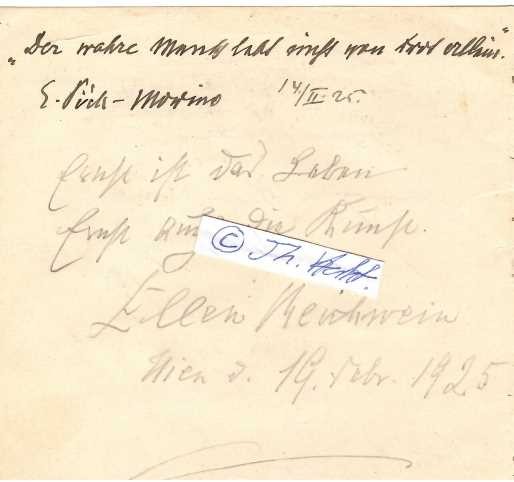 „Der wahre Mensch lebt nicht von Brot allein."
E. Pick-Morino 14/II 25.
Ernst ist das Leben
Ernst auch die Kunst.
© Th.
Ellen Reichwein
Wien d. 19. Febr. 1925